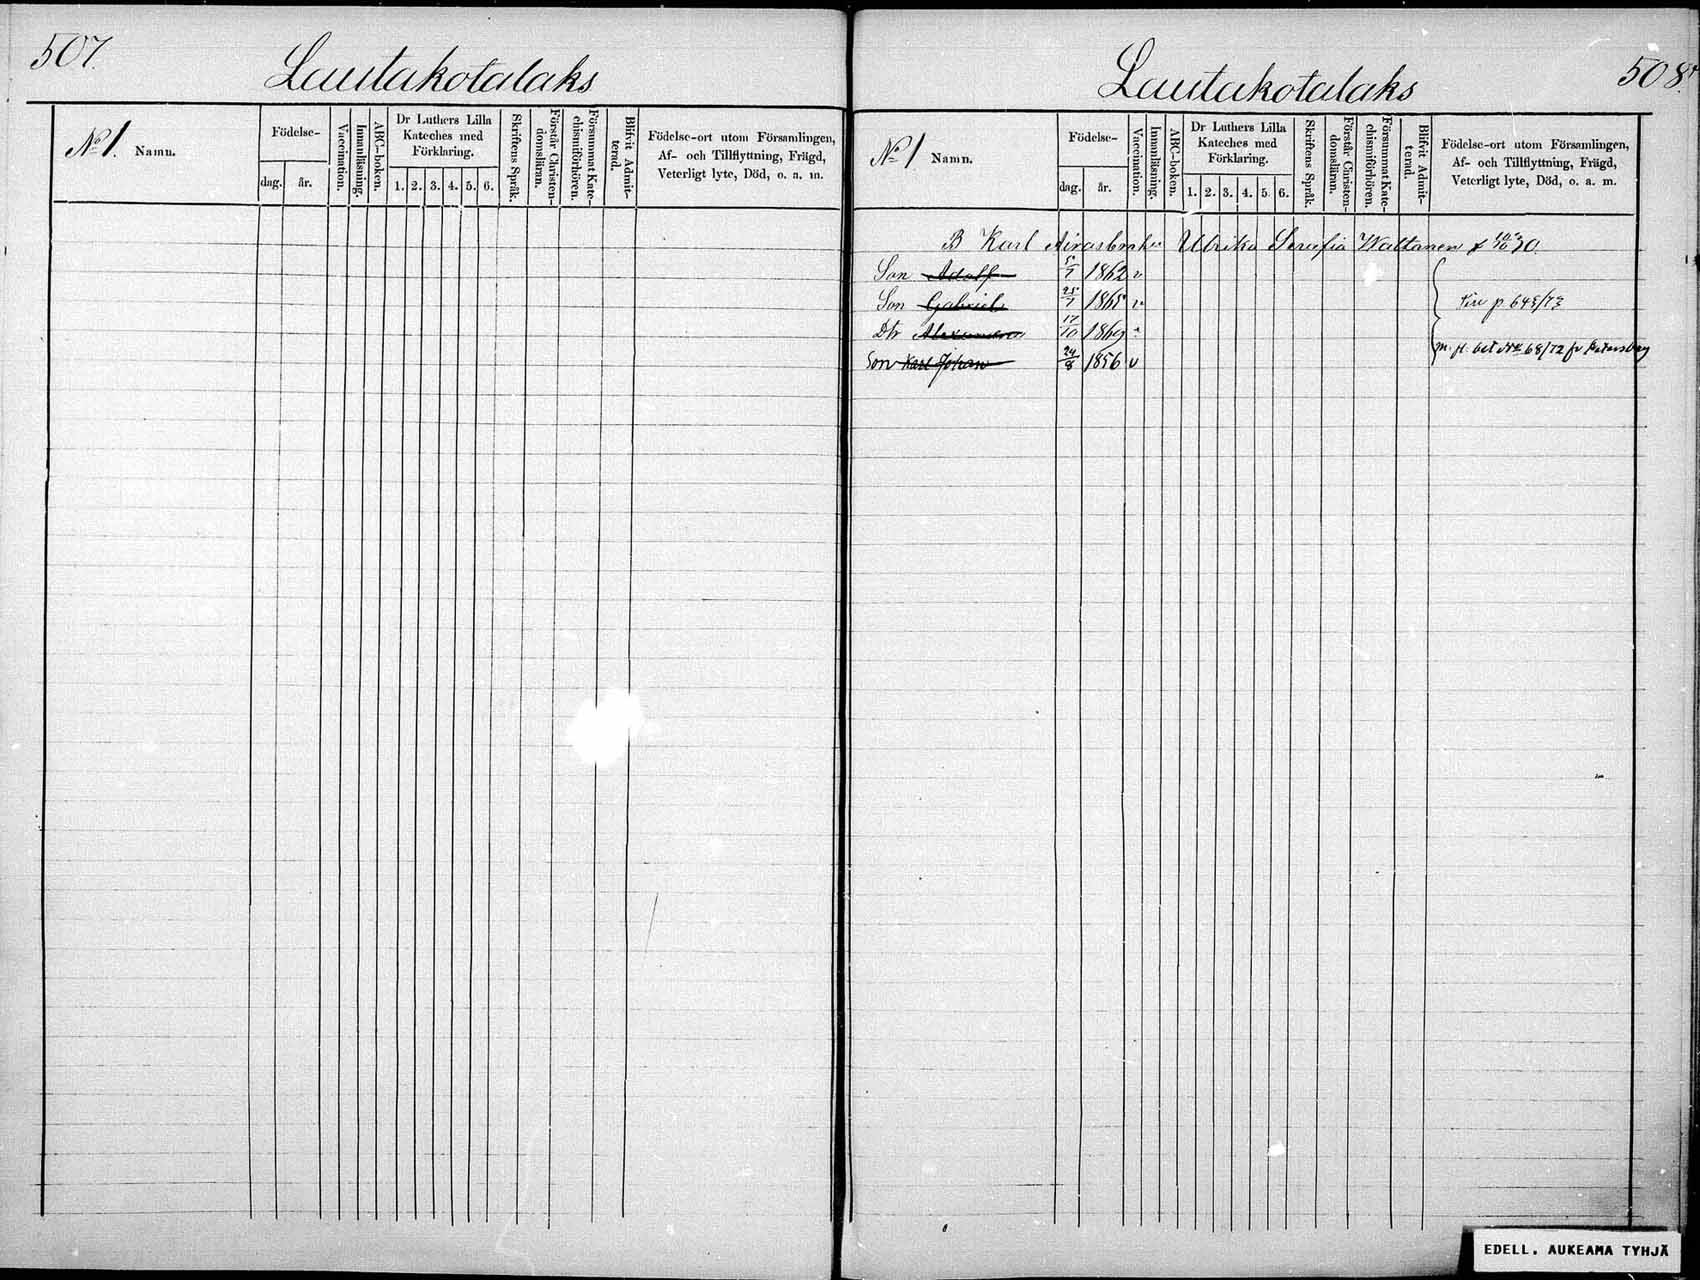 507.
Lautakotalaks
No 1. Namn.
Födelse-
dag.
år.
Vaccination.
Innanläsning.
ABC-boken.
Dr Luthers Lilla
Kateches med
Förklaring.
1. 2. 3. 4. 5. 6.
Skriftens Språk.
Förstår Christen-
domsläran.
Försummat Kate-
chismiförhören.
Blifvit Admit-
terad.
Födelse-ort utom Församlingen,
Af- och Tillflyttning, Frägd,
Veterligt lyte, Död, o. a. m.
508.
Lautakotalaks
No 1 Namn.
Födelse-
dag.
år.
Vaccination.
Innanläsning.
ABC-boken.
Dr Luthers Lilla
Kateches med
Förklaring.
1. 2. 3. 4. 5. 6.
Skriftens Språk.
Förstår Christen-
domsläran.
Försummat Kate-
chismiförhören.
Blifvit Admit-
terad.
Födelse-ort utom Församlingen,
Af- och Tillflyttning, Frägd,
Veterligt lyte, Död, o. a. m.
B Karl Ulrika Serafia Wattanen 70.
Son Adolf 5/7 1862 v
Son Gabriel 25/7 1865 v
p. 645/73
Dtr Alexandra 17/10 1869
m. fl. bet No 68/72 fr Petersburg
Son Karl Johan 24/8 1856 v
EDELL. AUKEAMA TYHJÄ